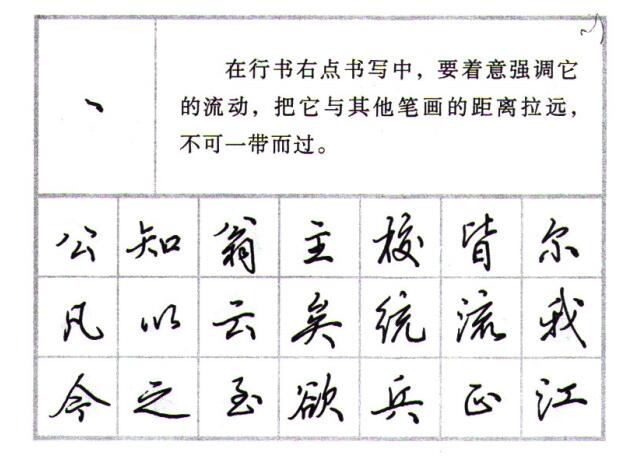 在行书右点书写中，要着意强调它
的流动，把它与其他笔画的距离拉远，
不可一带而过。
公 知 翁 主 校 皆 尔
凡 以 云 矣 统 流 我
今 之 至 欲 兵 正 江